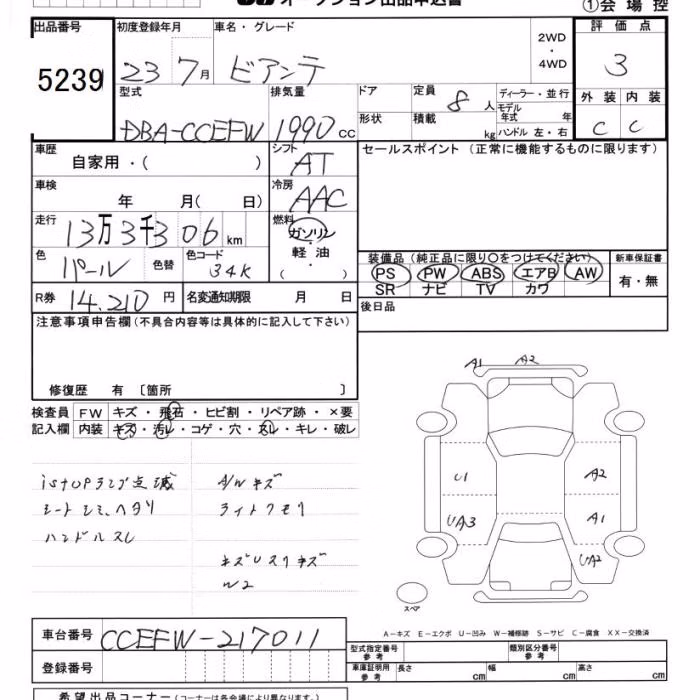 オークション出品申込書
①会場控
出品番号 初度登録年月 車名・グレード 2WD・4WD 評価点
5239 23 7月 ビアンテ 3
型式 排気量 ドア 定員 8人 ディーラー・並行 外装 内装
DBA-CCEFW 1990cc 形状 積載 kg モデル年式 年 ハンドル 左・右 C C
車歴 自家用・( ) シフト AT セールスポイント (正常に機能するものに限ります)
車検 年 月( 日) 冷房 AAC
走行 13万3千306km 燃料 ガソリン・軽油・( )
色 パール 色替 色コード 34K 装備品 (純正品に限り○をつけてください) 新車保証書
PS PW ABS エアB AW 有・無
SR ナビ TV カワ
R券 14,210円 名変通知期限 月 日 後日品
注意事項申告欄(不具合内容等は具体的に記入して下さい)
修復歴 有 〔箇所 〕
検査員 FW キズ・飛石・ヒビ割・リペア跡・×要
記入欄 内装 キズ・汚レ・コゲ・穴・スレ・キレ・破レ
A1 A2
istopランプ点滅 A/Wキズ
シートシミ、ヘタリ ライトクモリ
ハンドルスレ
キズUスリキズ
W2
U1 A2
UA3 A1
UA2
スペア
A-キズ E-エクボ U-凹み W-補修跡 S-サビ C-腐食 XX-交換済
車台番号 CCEFW-217011
登録番号
型式指定番号 参考 類別区分番号 参考
車庫証明用 参考 長さ cm 幅 cm 高さ cm
希望出品コーナー (コーナーは各会場により異なります。)